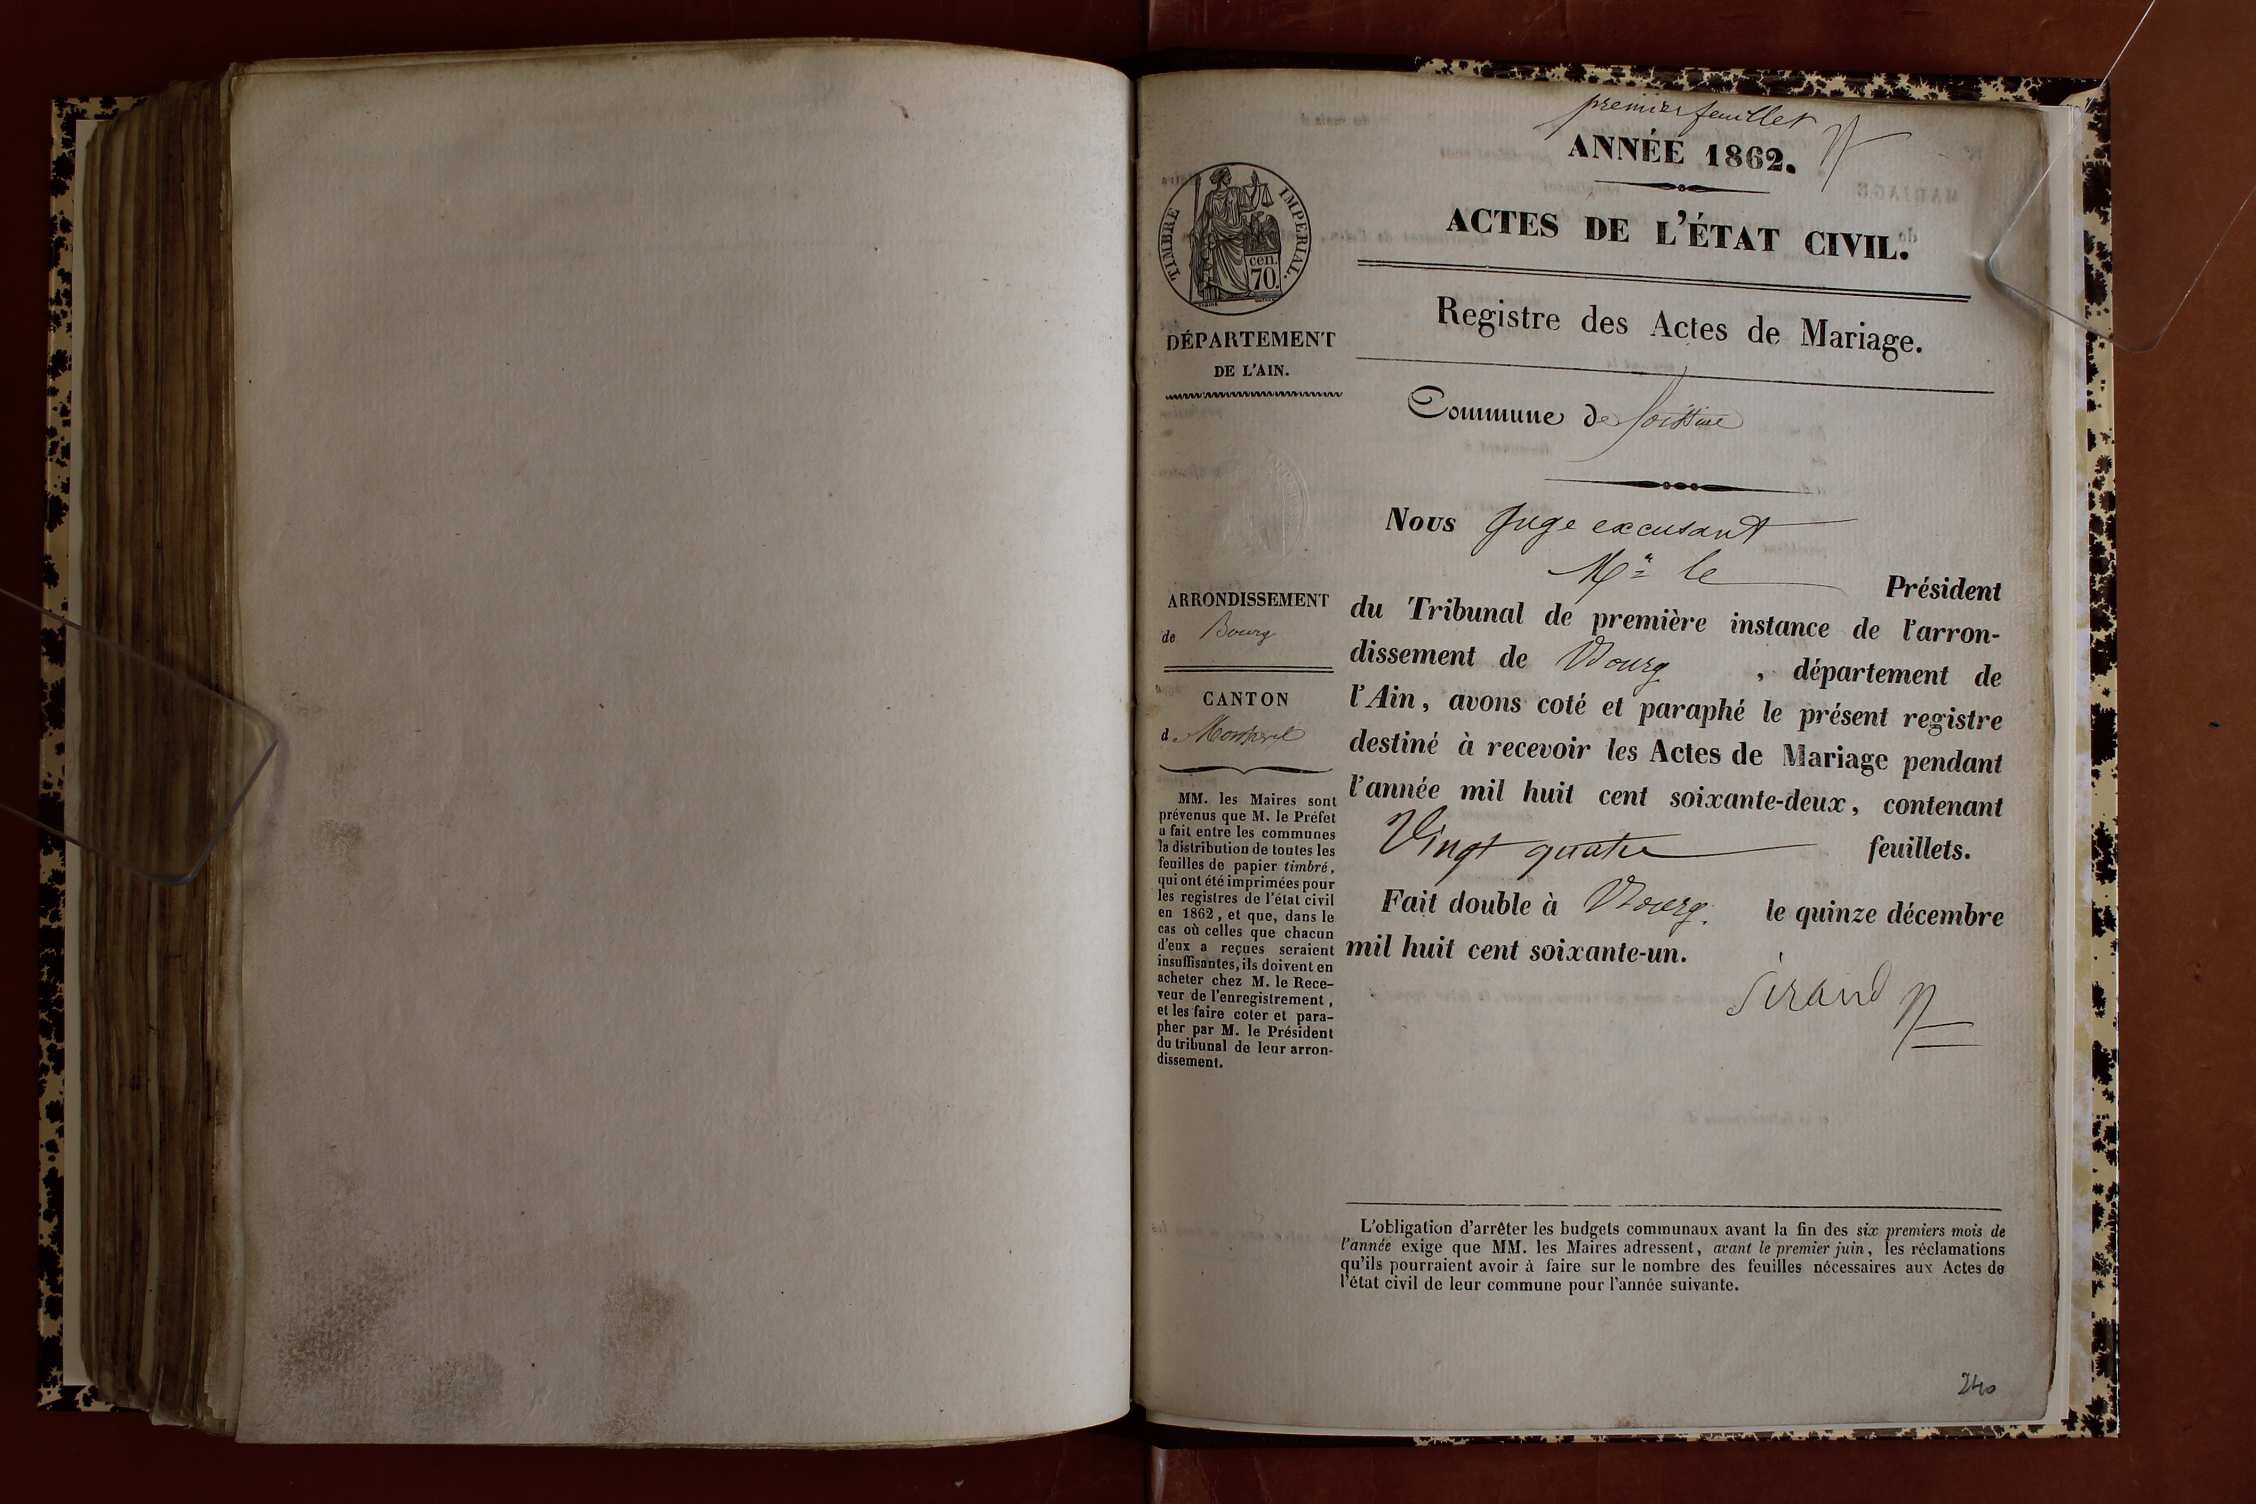 premier feuillet
ANNÉE 1862.
ACTES DE L'ÉTAT CIVIL.
TIMBRE IMPERIAL.
cen.
70.
DÉPARTEMENT
DE L'AIN.
Registre des Actes de Mariage.
Commune de
Nous Juge excusant
Mr le Président
du Tribunal de première instance de l'arron-
dissement de Bourg, département de
l'Ain, avons coté et paraphé le présent registre
destiné à recevoir les Actes de Mariage pendant
l'année mil huit cent soixante-deux, contenant
Vingt quatre feuillets.
Fait double à Bourg. le quinze décembre
mil huit cent soixante-un.
Sirand
ARRONDISSEMENT
de Bourg
CANTON
d
MM. les Maires sont
prévenus que M. le Préfet
a fait entre les communes
la distribution de toutes les
feuilles de papier timbré,
qui ont été imprimées pour
les registres de l'état civil
en 1862, et que, dans le
cas où celles que chacun
d'eux a reçues seraient
insuffisantes, ils doivent en
acheter chez M. le Rece-
veur de l'enregistrement,
et les faire coter et para-
pher par M. le Président
du tribunal de leur arron-
dissement.
L'obligation d'arrêter les budgets communaux avant la fin des six premiers mois de
l'année exige que MM. les Maires adressent, avant le premier juin, les réclamations
qu'ils pourraient avoir à faire sur le nombre des feuilles nécessaires aux Actes de
l'état civil de leur commune pour l'année suivante.
240